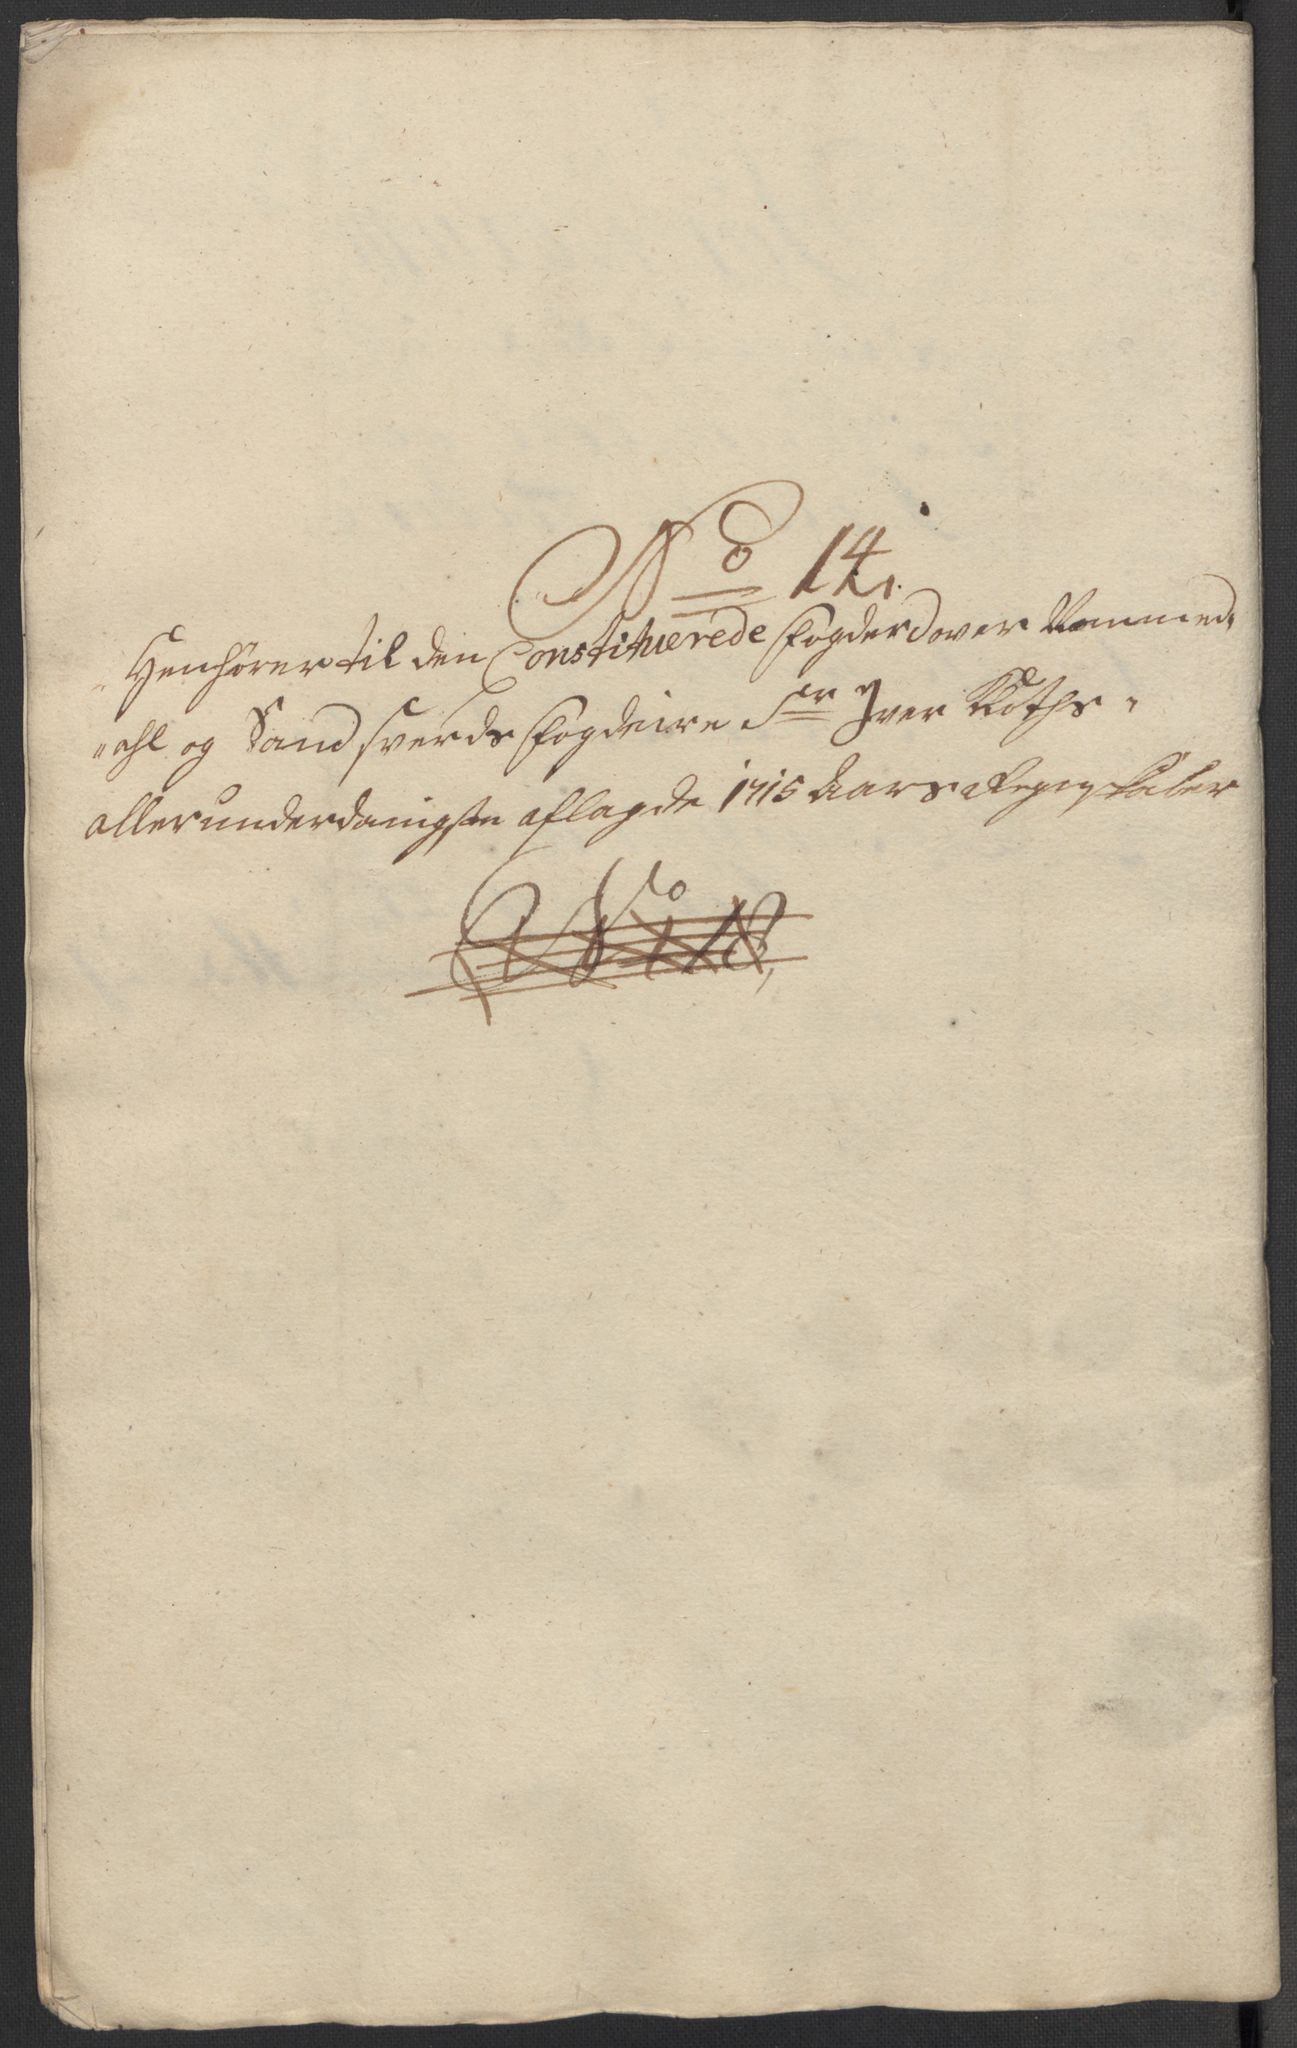 No 14.
Henhører til den Constituerede fogderd over Nummed,
"ahl og Sandsverds fogderie Sr Iver Roths"
allerunderdanigste aflagde 1715 Aars Regnskaber
No 18,